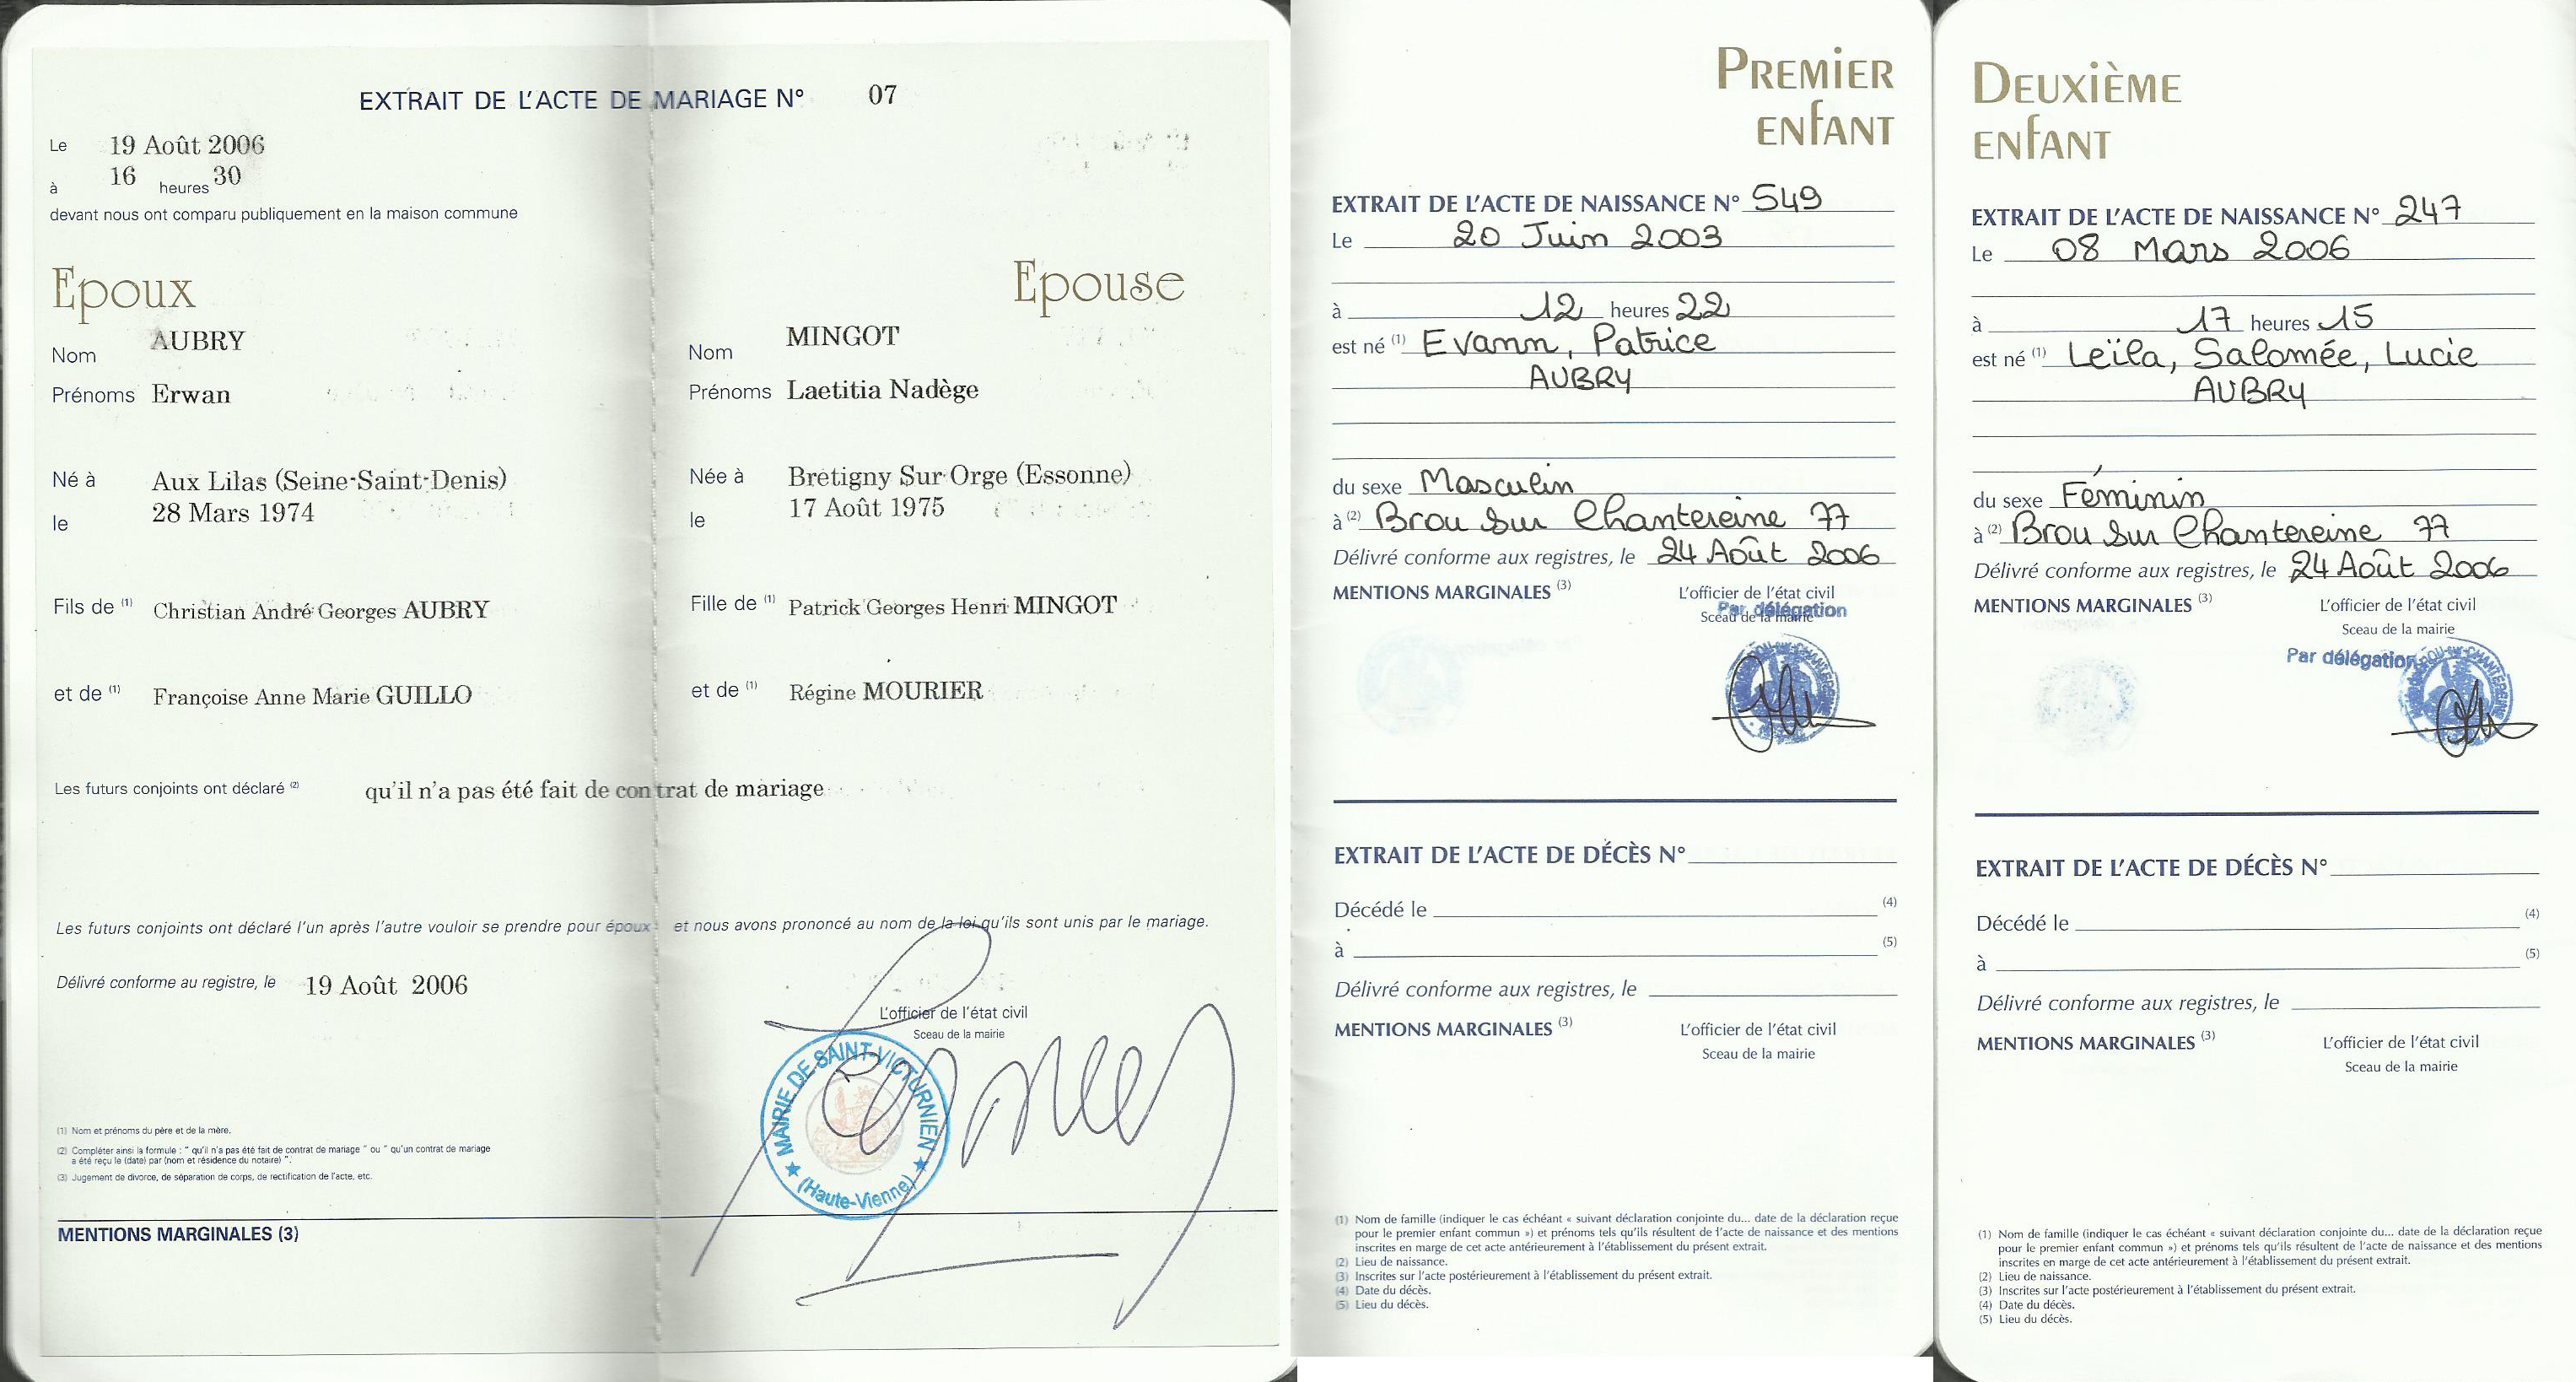 EXTRAIT DE L'ACTE DE MARIAGE N° 07
Le 19 Août 2006
à 16 heures 30
devant nous ont comparu publiquement en la maison commune
Epoux
Nom AUBRY
Prénoms Erwan
Né à Aux Lilas (Seine-Saint-Denis)
le 28 Mars 1974
Fils de (1) Christian André Georges AUBRY
et de (1) Françoise Anne Marie GUILLO
Epouse
Nom MINGOT
Prénoms Laetitia Nadège
Née à Bretigny Sur Orge (Essonne)
le 17 Août 1975
Fille de (1) Patrick Georges Henri MINGOT
et de (1) Régine MOURIER
Les futurs conjoints ont déclaré (2) qu'il n'a pas été fait de contrat de mariage
Les futurs conjoints ont déclaré l'un après l'autre vouloir se prendre pour époux et nous avons prononcé au nom de la loi qu'ils sont unis par le mariage.
Délivré conforme au registre, le 19 Août 2006
L'officier de l'état civil
Sceau de la mairie
MAIRIE DE SAINT-VICTURNIEN
(Haute-Vienne)
(1) Nom et prénoms du père et de la mère.
(2) Compléter ainsi la formule : " qu'il n'a pas été fait de contrat de mariage " ou " qu'un contrat de mariage
a été reçu le (date) par (nom et résidence du notaire) ".
(3) Jugement de divorce, de séparation de corps, de rectification de l'acte, etc.
MENTIONS MARGINALES (3)
PREMIER
ENFANT
EXTRAIT DE L'ACTE DE NAISSANCE N° 549
Le 20 Juin 2003
à 12 heures 22
est né (1) Evann, Patrice
AUBRY
du sexe Masculin
à (2) Brou sur Chantereine 77
Délivré conforme aux registres, le 24 Août 2006
MENTIONS MARGINALES (3)
L'officier de l'état civil
Par délégation
Sceau de la mairie
EXTRAIT DE L'ACTE DE DÉCÈS N°
Décédé le (4)
à (5)
Délivré conforme aux registres, le
MENTIONS MARGINALES (3)
L'officier de l'état civil
Sceau de la mairie
(1) Nom de famille (indiquer le cas échéant « suivant déclaration conjointe du... date de la déclaration reçue
pour le premier enfant commun ») et prénoms tels qu'ils résultent de l'acte de naissance et des mentions
inscrites en marge de cet acte antérieurement à l'établissement du présent extrait.
(2) Lieu de naissance.
(3) Inscrites sur l'acte postérieurement à l'établissement du présent extrait.
(4) Date du décès.
(5) Lieu du décès.
DEUXIÈME
ENFANT
EXTRAIT DE L'ACTE DE NAISSANCE N° 247
Le 08 Mars 2006
à 17 heures 15
est né (1) Leïla, Salomée, Lucie
AUBRY
du sexe Féminin
à (2) Brou sur Chantereine 77
Délivré conforme aux registres, le 24 Août 2006
MENTIONS MARGINALES (3)
L'officier de l'état civil
Sceau de la mairie
Par délégation
EXTRAIT DE L'ACTE DE DÉCÈS N°
Décédé le (4)
à (5)
Délivré conforme aux registres, le
MENTIONS MARGINALES (3)
L'officier de l'état civil
Sceau de la mairie
(1) Nom de famille (indiquer le cas échéant « suivant déclaration conjointe du... date de la déclaration reçue
pour le premier enfant commun ») et prénoms tels qu'ils résultent de l'acte de naissance et des mentions
inscrites en marge de cet acte antérieurement à l'établissement du présent extrait.
(2) Lieu de naissance.
(3) Inscrites sur l'acte postérieurement à l'établissement du présent extrait.
(4) Date du décès.
(5) Lieu du décès.